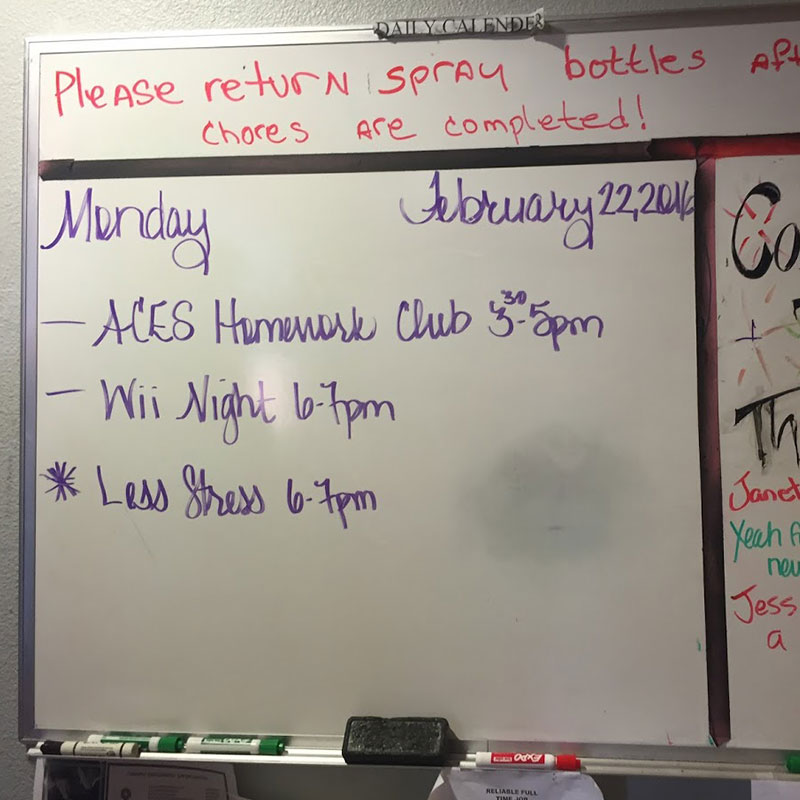 DAILY CALENDER
Please return spray bottles aft
chores are completed!
Monday February 22, 2016
— ACES Homework Club 3:30-5pm
— Wii Night 6-7pm
* Less Stress 6-7pm
Co
Th
Janet
Yeah f
new
Jess
a
EXPO
RELIABLE FULL
TIME JOB